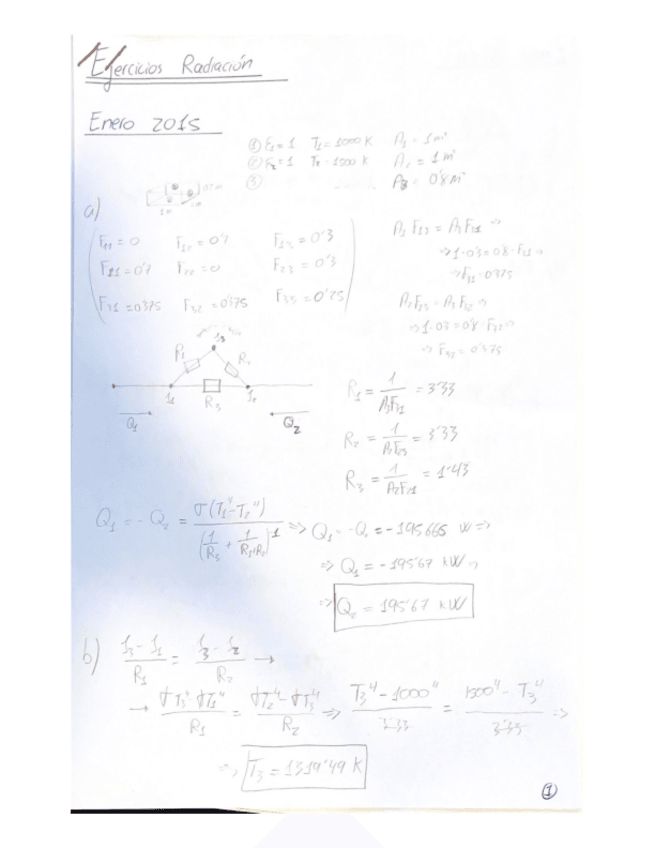 Ejercicios Radiación
Enero 2015
① ε₁ = 1 T₁ = 1000 K A₁ = 1 m²
② ε₂ = 1 T₂ = 1500 K A₂ = 1 m²
③ A₃ = 0'8 m²
a)
1 m
F₁₁ = 0 F₁₂ = 0'7 F₁₃ = 0'3
F₂₁ = 0'7 F₂₂ = 0 F₂₃ = 0'3
F₃₁ = 0'375 F₃₂ = 0'375 F₃₃ = 0'25
A₁F₁₃ = A₃F₃₁ ⇒
⇒ 1·0'3 = 0'8·F₃₁ ⇒
⇒ F₃₁ = 0'375
A₂F₂₃ = A₃F₃₂ ⇒
⇒ 1·0'3 = 0'8·F₃₂ ⇒
⇒ F₃₂ = 0'375
J₃
R₁ R₂
J₁ R₃ J₂
Q₁ Q₂
R₁ = 1/A₃F₃₁ = 3'33
R₂ = 1/A₂F₂₃ = 3'33
R₃ = 1/A₂F₂₁ = 1'43
Q₁ = -Q₂ = σ(T₁⁴-T₂⁴)/(1/R₃ + 1/(R₁+R₂))⁻¹ ⇒ Q₁ = -Q₂ = -195665 W ⇒
⇒ Q₁ = -195'67 kW ⇒
⇒ Q₂ = 195'67 kW
b) (J₃ - J₁)/R₁ = (J₃ - J₂)/R₂ →
→ (σT₃⁴ - σT₁⁴)/R₁ = (σT₂⁴ - σT₃⁴)/R₂ ⇒ (T₃⁴ - 1000⁴)/3'33 = (1500⁴ - T₃⁴)/3'33 ⇒
⇒ T₃ = 1319'49 K
①